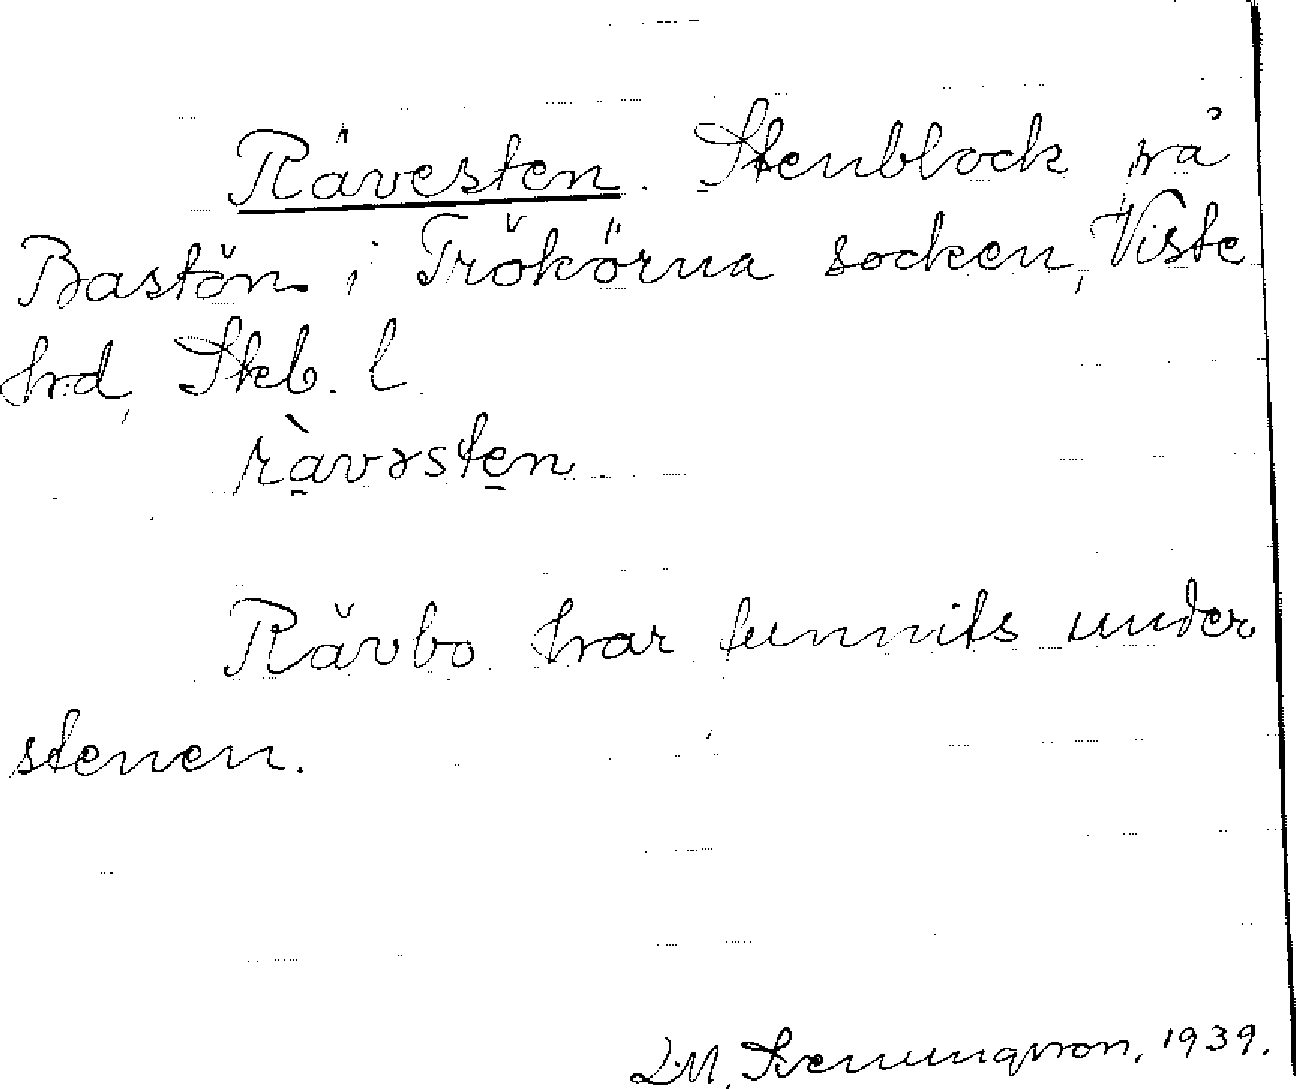 Rävesten. Stenblock på
Bastön i Trökörna socken, Viste
hrd, Skb. l.
ràvəstęn
Rävbo har funnits under
stenen.
D.M. Svenungsson, 1939.